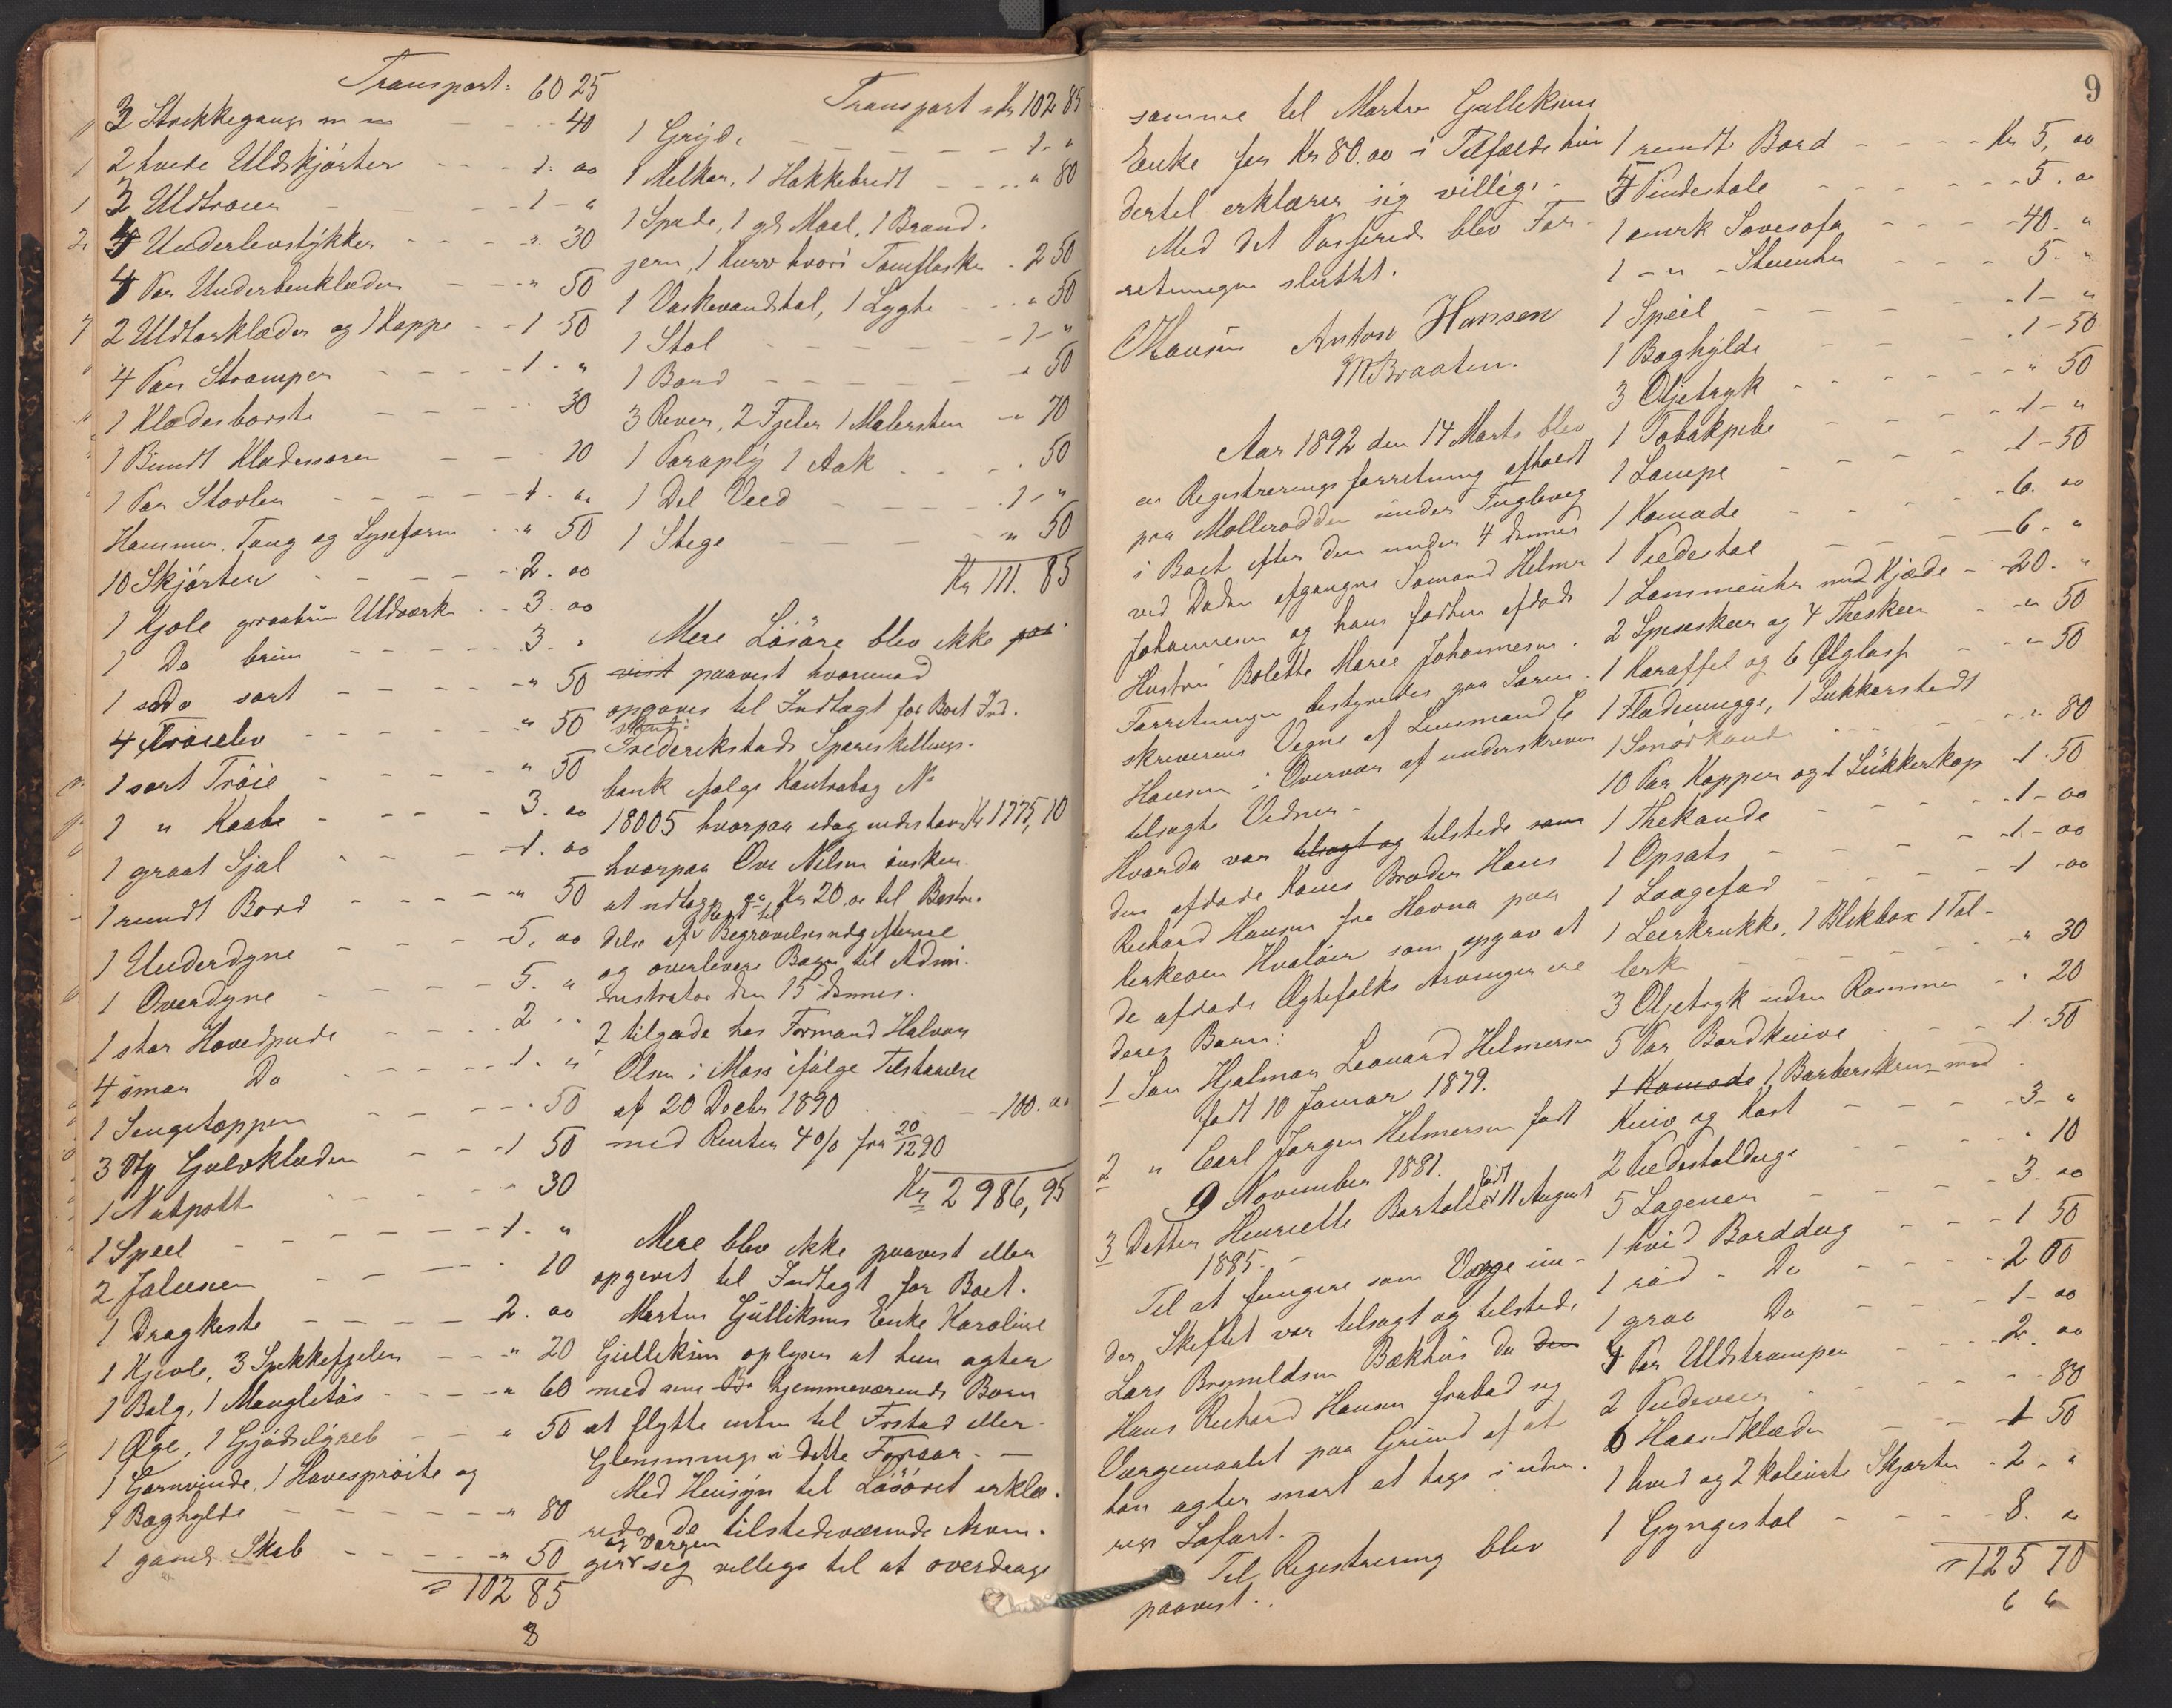 Transport: 60 25
3 Strikkegang m m - - - 40
2 hvide Uldskjörter - - - 1. 00
3 Uldtröier - - - 1 - "
4 Underlivstykker - - - " 30
4 Par Underbenklæder - - - " 50
2 Uldtörklæder og 1 Kappe - - 1 50
4 Par Strömper - - - 1. "
1 Klædesbörste - - - 30
1 Bundt Klædessnorer - - - 20
1 Par Støvler - - - 1. 00
Hammer, Tang og Lyseform - - " 50
10 Skjörter - - - 2. 00
1 Kjole graabrun Uldværk - - 3. 00
1 Do brun - - - 3. "
1 Do sort - - - " 50
4 Tröieliv - - - " 50
1 sort Tröie - - - " 50
1 " Kaabe - - - 3. 00
1 graat Sjal - - - 1. 00
1 rundt Bord - - - " 50
1 Underdyne - - - 5. 00
1 Overdyne - - - 5. "
1 stor Hovedpude - - - 2 "
4 smaa Do - - - 1. "
1 Sengetæppe - - - 50
3 Gulvklæder - - - 1 50
1 Natpotte - - - 30
1 Speil - - - 1. "
2 Jalusier - - - 20
1 Dragkiste - - - 2. 00
1 Kjevle, 3 Spekkefjeler - - - " 20
1 Balg, 1 Mangletøi - - - " 60
1 Øxe, 1 Gjödselgreb - - - " 50
1 Garnvinde, 1 Havesproite og
1 Boghylde - - - " 80
1 gaml. Skab - - - " 50
= 102 85
8
Transport Kr 102 85
1 Gryde - - - 1 - "
1 Melkar, 1 Hakkebredt - - - " 80
1 Spade, 1 gl. Maal, 1 Brand-
jern, 1 kurv hvori Tomflasker - 2 50
1 Vaskevandstol, 1 Lygte - - - " 50
1 Stol - - - 1 - "
1 Bord - - - " 50
3 River, 2 Fjeler 1 Malersten - " 70
1 Paraply 1 Aak - - - 50
1 Del Veed - - - 1 - "
1 Stege - - - " 50
Kr 111. 85
Mere Lösöre blev ikke paa-
vist paavist hvorimod
opgaves til Indtægt for Boet Ind-
skud i
Frederikstads Spareskillings-
bank ifølge Kontrabog No
18005 hvorpaa idag indestaar Kr 1775,10
hvorpaa Ove Nilsen önsker
at udtage Kr 20.00 til Bestri-
delse af Rest til Begravelsesudgifterne
og overlevere Bogen til Admi-
nistrator den 15 dennes.
2 tilgode hos Formand Halvor
Olsen i Moss ifølge Tilstaaelse
af 20 Decbr 1890 - - - 100. 00
med Renter 4 % fra 20/12 90
Kr 2 986,95
Mere blev ikke paavist eller
opgivet til Indtægt for Boet.
Martin Gulliksens Enke Karoline
Gulliksen oplyser at hun agter
med sine hjemmeværende Børn
at flytte enten til Frstad eller
Glemminge i dette Foraar. -
Med Hensyn til Lösöret erklæ-
rede de tilstedeværende Arvin-
ger og Vergen sig villige til at overdrage
9
samme til Martin Gulliksens
Enke for Kr 80.00 i Tilfælde hun
dertil erklærer sig villig. -
Med det Passerede blev For-
retningen sluttet.
CHansen Anton Hansen
M Braaten.
Aar 1892 den 14 Marts blev
en Registreringsforretning afholdt
paa Mollerodden under Fuglevig
i Boet efter den under 4 dennes
ved Døden afgangne Sömand Helmer
Johannesen og hans forhen afdøde
Hustru Bolette Marie Johannesen.
Forretningen bestyredes paa Soren-
skriverens Vegne af Lensmand C
Hansen i Overvær af underskrevne
tilsagte Vidner -
Hvorda var tilsagt og tilstede som
den afdøde Kones Broder Hans
Richard Hansen fra Havna paa
Kirkeøen Hvaløer som opgav at
de afdøde Ægtefolks Arvinger ere
deres Børn:
1 Søn Hjalmar Leonard Helmersen
født 10 Januar 1879.
2 " Carl Jørgen Helmersen født
9 November 1881.
3 Datter Henriette Bartolie født 11 August
1885. -
Til at fungere som Værge un-
der Skiftet var tilsagt og tilstede
Lars Brynildsen Bækhus da den
Hans Richard Hansen frabad sig
Værgemaalet paa Grund af at
han agter snart at tage i uden-
rigs Søfart. -
Til Registrering blev
paavist. .
1 rundt Bord - - - Kr 5, 00
5 Pindestole - - - 5. 00
1 amrk Sovesofa - - - 40. "
1 - " - Stueuhr - - - 5. "
1 Speil - - - 1 - "
1 Boghylde - - - 1 - 50
3 Oljetryk - - - " 50
1 Tobakpibe - - - 1 - "
1 Lampe - - - 1 - 50
1 Komode - - - 6. 00
1 Piedestal - - - 6. "
1 Lommeuhr med Kjæde - 20. "
2 Spiseskeer og 4 Theskeer - " 50
1 Karaffel og 6 Ølglas - - " 50
1 Flødemugge, 1 Sukkerstedt
1 Smörkande - - - " 80
10 Par Kopper og 1 Sukkerkop 1. 50
1 Thekande - - - 1 - 00
1 Opsats - - - 1 - 00
1 Laagefad - - - 1 - 00
1 Leerkrukke, 1 Blikbox 1 Tal-
lerk - - - " 30
3 Oljetryk uden Rammer - " 20
5 Par Bordknive - - - 1. 50
1 Komode 1 Barberskrin med
Kniv og Kost - - - 3 - "
2 Piedestalduge - - - " 10
5 Lagener - - - 3. 00
1 hvid Borddug - - - 1 50
1 röd - Do - - - 2 00
1 graa Do - - - 1 - 00
4 Par Uldstrømper - - - 2. 00
2 Pudevaer - - - 80
6 Haandklæder - - - 1 50
1 hvid og 2 kolerte Skjorter - 2 - "
1 Gyngestol - - - 8. 00
= 125 70